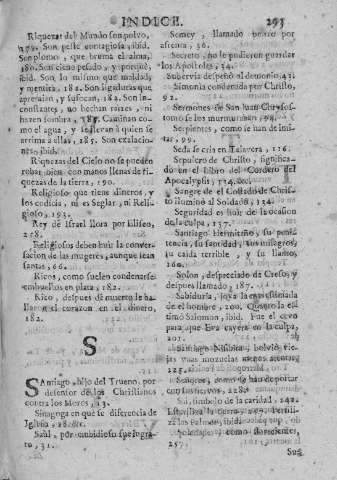 INDICE. 293
Riquezas del Mundo son polvo,
Son peste contagiosa, ibid.
Son plomo, que bruma el alma,
180. Son cieno pesado, y porquè,
ibid. Son lo mismo que maldad,
y mentira, 182. Son ligaduras que
aprenian, y sufocan, 182. Son in-
constantes, no hechan raizes, ni
hazen sombra, 185. Caminan co-
mo el agua, y se llevan à quien se
arrima à ellas, 185. Son exalacio-
nes, ibid.
Riquezas del Cielo no se pueden
robar, bien con manos llenas de fi-
quezas de la tierra, 190.
Religioso que tiene dineros, y
los codicia, ni es Seglar, ni Reli-
gioso, 193.
Rey de Israel llora por Eliseo,
258.
Religiosos deben huir la conver-
sacion de las mugeres, aunque sean
santas, 66.
Ricos, como suelen condenarse
embueltos en plata, 182.
Rico, despues de muerto le ha-
llaron el corazon en el dinero,
182.
S
SAntiago, hijo del Trueno, por
defensor de los Christianos
contra los Moros, 13.
Sinagoga en que se diferencia de
Iglesia, 28. &c.
Saùl, por embidioso fue ingra-
to, 31.
Semey, llamado perro por
afrenta, 36.
Secreto, no le pudieron guardar
los Apostoles, 54.
Subervia despeñò al demonio, 43.
Simonia condenada por Christo,
92.
Sermones de San Juan Chrysos-
tomo se los murmuraban, 98.
Serpientes, como se han de imi-
tar, 99.
Seda se cria en Talavera, 116.
Sepulcro de Christo, significa-
do en el Libro del Cordero del
Apocalypsis, 134. &c.
Sangre de el Costado de Chris-
to iluminò al Soldado, 134.
Seguridad es huir de la ocasion
de la culpa, 137.
Santiago Hermitaño, su peni-
tencia, su santidad, sus milagros,
su caida terrible, y su llanto,
160.
Solon, despreciado de Creso, y
despues llamado, 187.
Sabiduria, joya la mas
de el hombre, 200. la esti-
mò Salomon, ibid. Fue el ceto
para que Eva cayera en la culpa,
201.
Santiago Nisibita, bolviò vie-
jas unas mozuelas menos atentas,
225.
Señores, como se han de portar
con sus siervos, 228.
Sal, simbolo de la caridad, 242.
Esteriliza la tierra, 247. Fertili-
za los Palmos, ibid.
como
257.
Sue